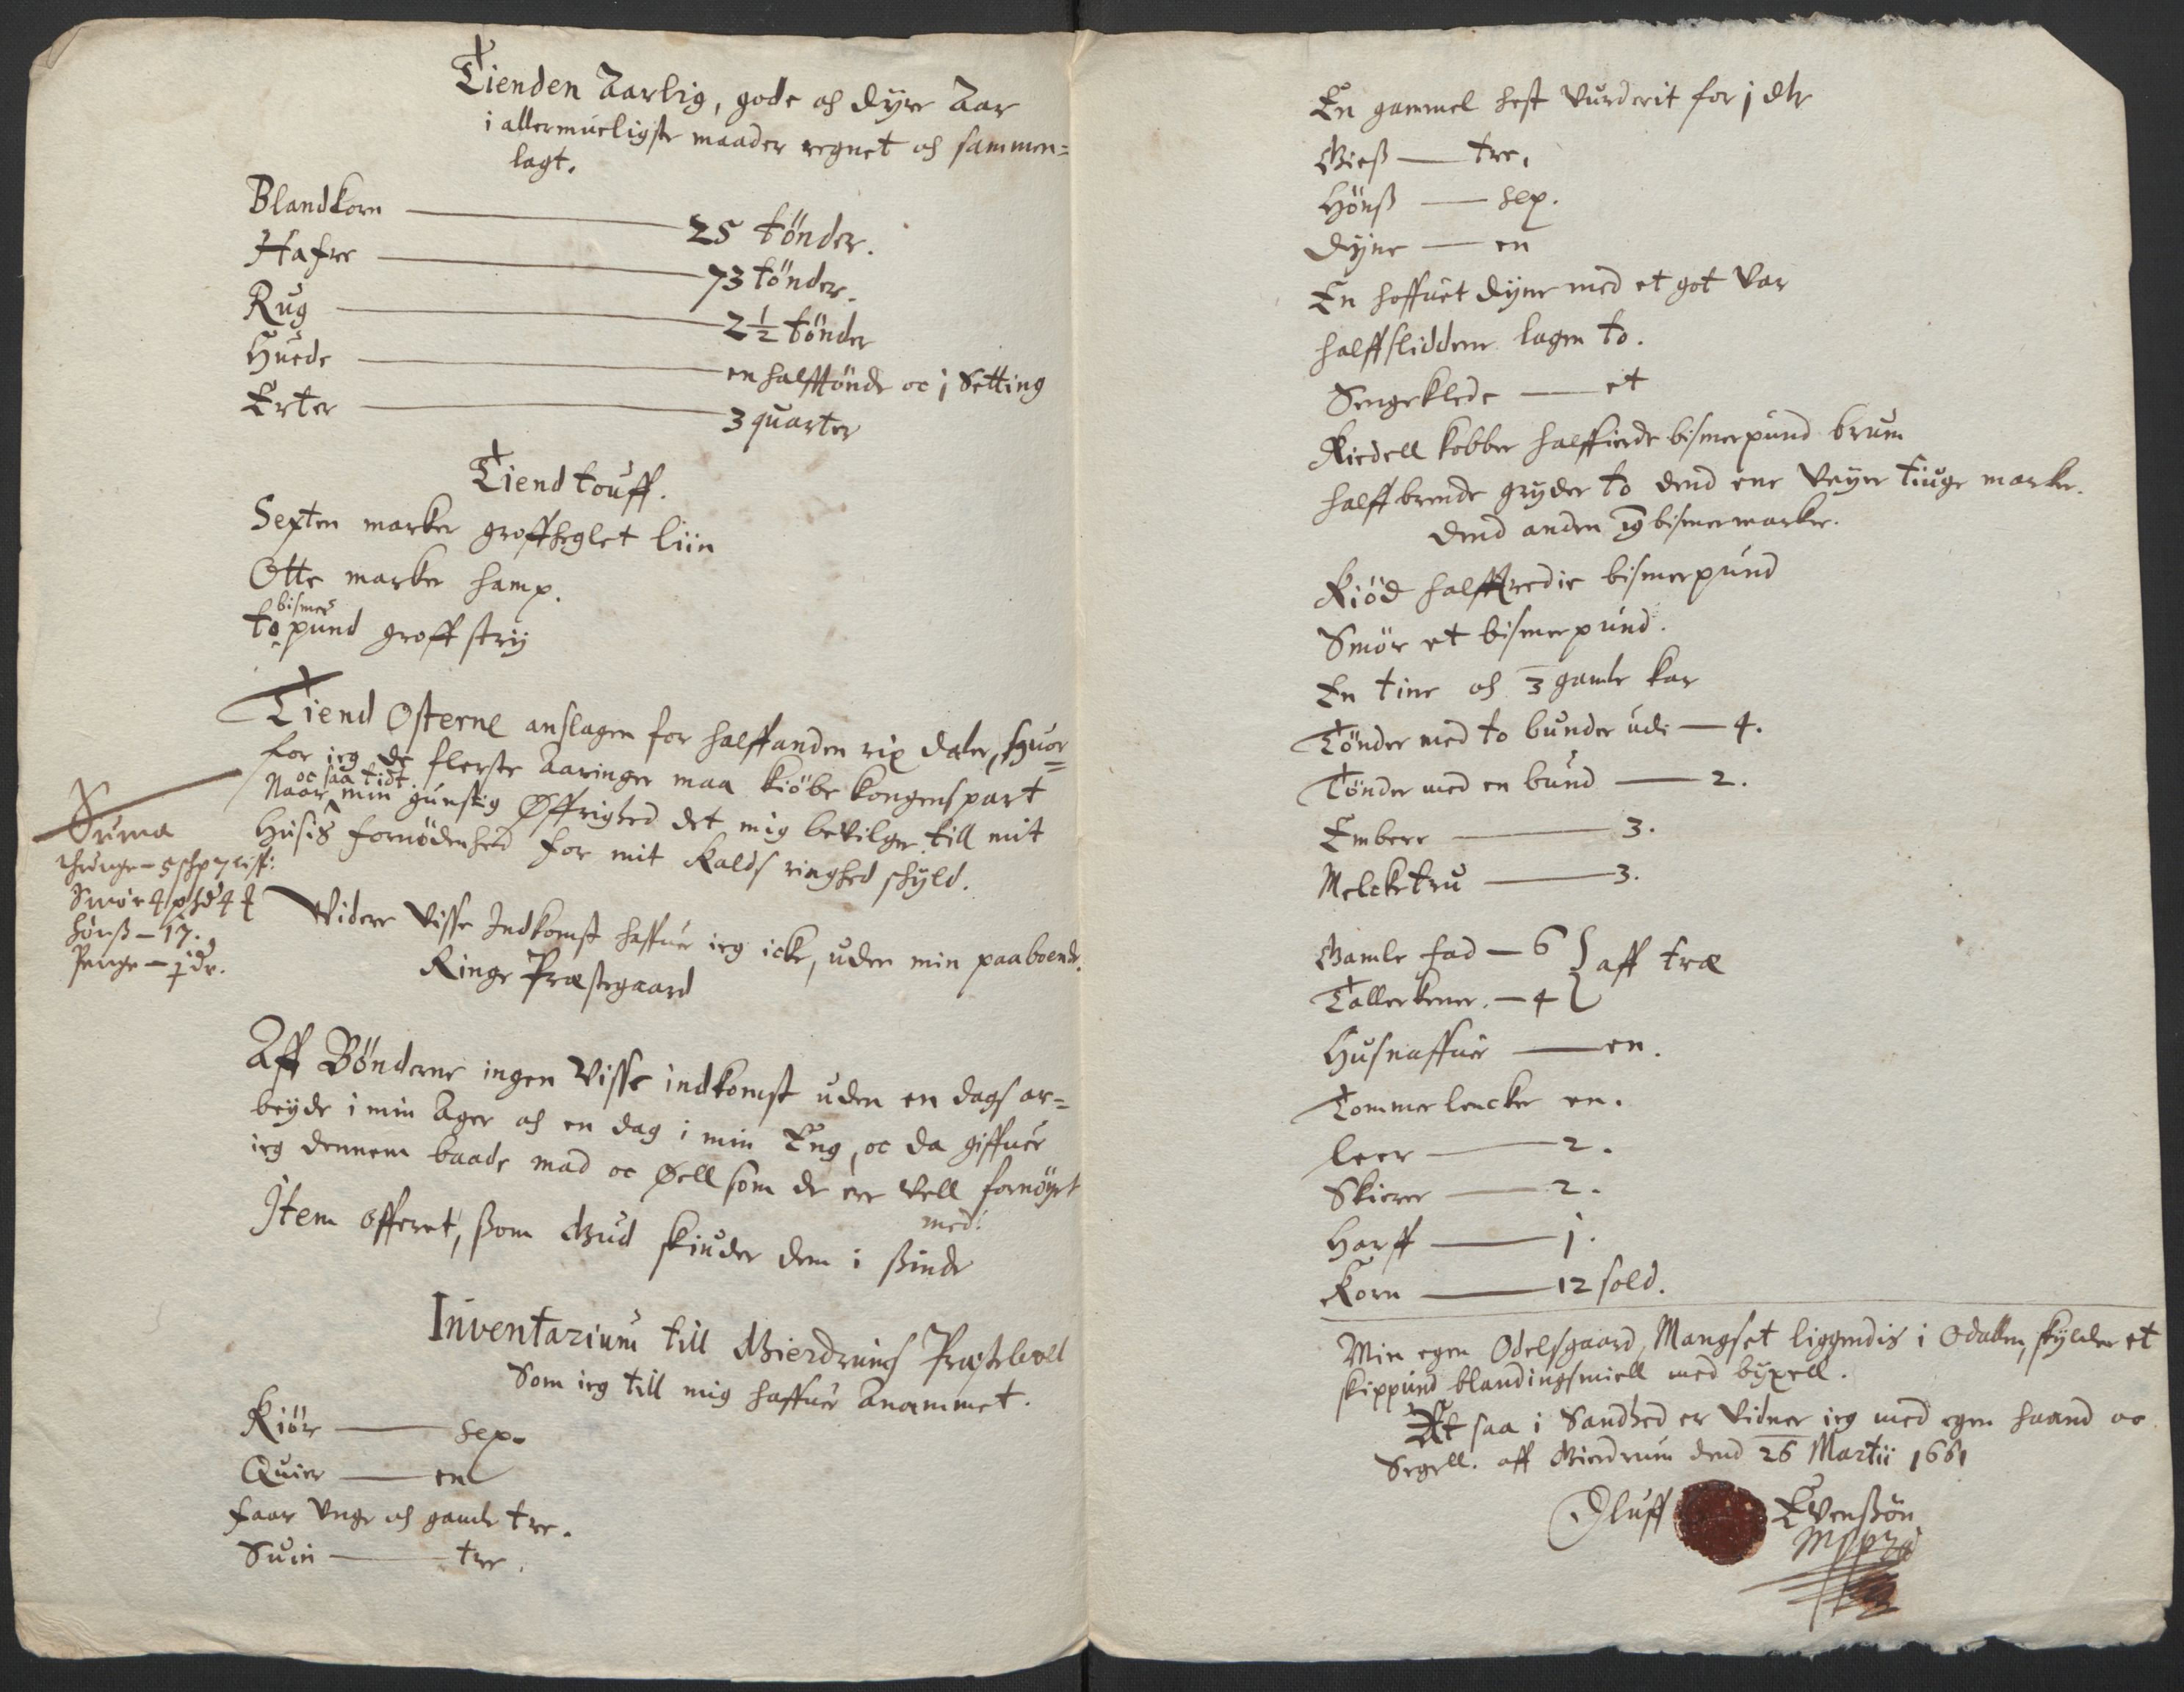 Tienden Aarlig, gode och dÿre Aar
i allermueligste maader regnet och sammen=
lagt.
Blandkorn — 25 tönder.
Hafre — 73 tönder.
Rug — 2½ tönder
Huede — en halfftönde oc j Setting
Erter — 3 quarter
Tiend touff.
Sexten marker groffheglet liin
Otte marker hamp.
bismer
to pund groff strÿ
Tiend Osterne anslagen for halffanden rix daler, huor=
for ieg de fleeste Aaringer maa kiöbe kongens part
oc saa tidt
Naar min gunstig Øffrighed det mig bevilger till mit
Husis fornödenhed for mit Kalds ringhed skÿld.
Suma
5 7
Smör 4 4
höns – 17.
Penge – 
Videre visse Indkomst haffuer ieg icke, uden min paaboende
Ringe Præstegaard
Aff Bönderne ingen visse indkomst uden en dags ar=
beÿde i min Ager och en dag i min Eng, oc da giffuer
ieg dennem baade mad oc Øell som de ere vell fornöÿet
med.
Item Offeret, som Gud skiuder dem i sinde
Inventarium till Gierdrums Præsteboell
Som ieg till mig haffuer Anammet.
Kiör — sex.
Quier — en
Faar Unge och gamle tre.
Suin — tre.
En gammel hest vurderit for j dlr
Giess — tre.
Hönss — sex.
Dÿne — en
En hoffuet dÿne med et got Var
halffsliddene lagen to.
Sengeklede — et
Kiedell kobber halffierde bismerpund brum
halffbrende grÿder to dend ene Veÿer tiuge marker.
dend anden 19 bismermarker.
Kiöd halfftredie bismerpund
Smör et bismerpund.
En tine och 3 gamle kar
Tönder med to bunder udi — 4.
Tönder med en bund — 2.
Embere — 3.
Melcketru — 3.
Gamle fad — 6
Tallerkener. — 4 } aff træ
Husnaffuer — en.
Tommerlencke en.
Leer — 2.
Skierer — 2.
Harff — j.
Korn — 12 sold.
Min egen Odelsgaard Mangset liggendis i Odallen, skÿlder et
skippund blandingsmiell med bÿxell.
At saa i Sandhed er vidner ieg med egen haand oc
Segell. aff Gierdrum dend 26 Martii 1661
Oluff Evenssön
Mppria